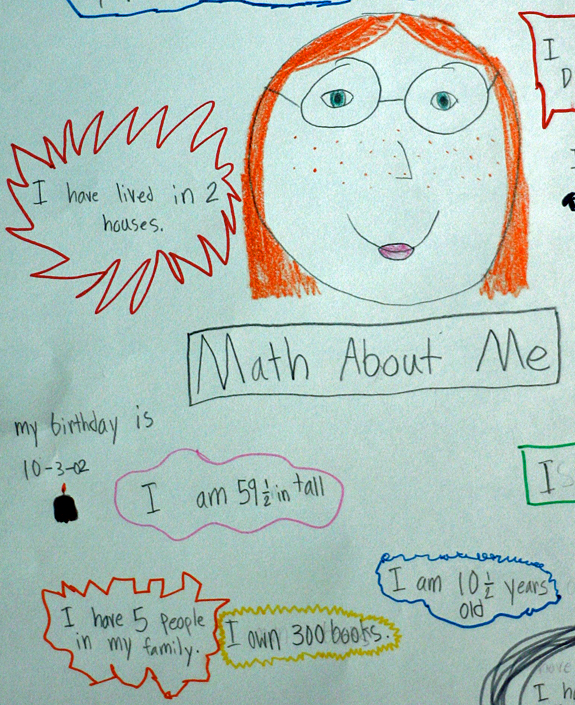 I
D
I have lived in 2
houses.
Math About Me
my birthday is
10-3-02
I am 59 1/2 in tall
I
I am 10 1/2 years
old
I have 5 people
in my family.
I own 300 books.
I ha